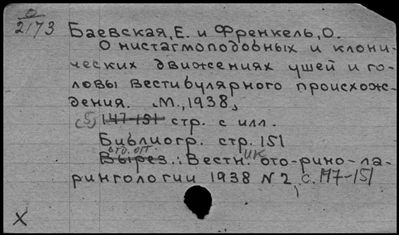 О
2173 Баевская, Е. и Френкель, О.
О нистагмоподобных и клони-
ческих движениях ушей и го-
ловы вестибулярного происхож-
дения. М., 1938,
(5) 147-151 стр. с илл.
Библиогр. стр. 151
отд. отт.
Вырез.: Вестник ото-рино-ла-
рингологии 1938 N 2, с. 147-151
X